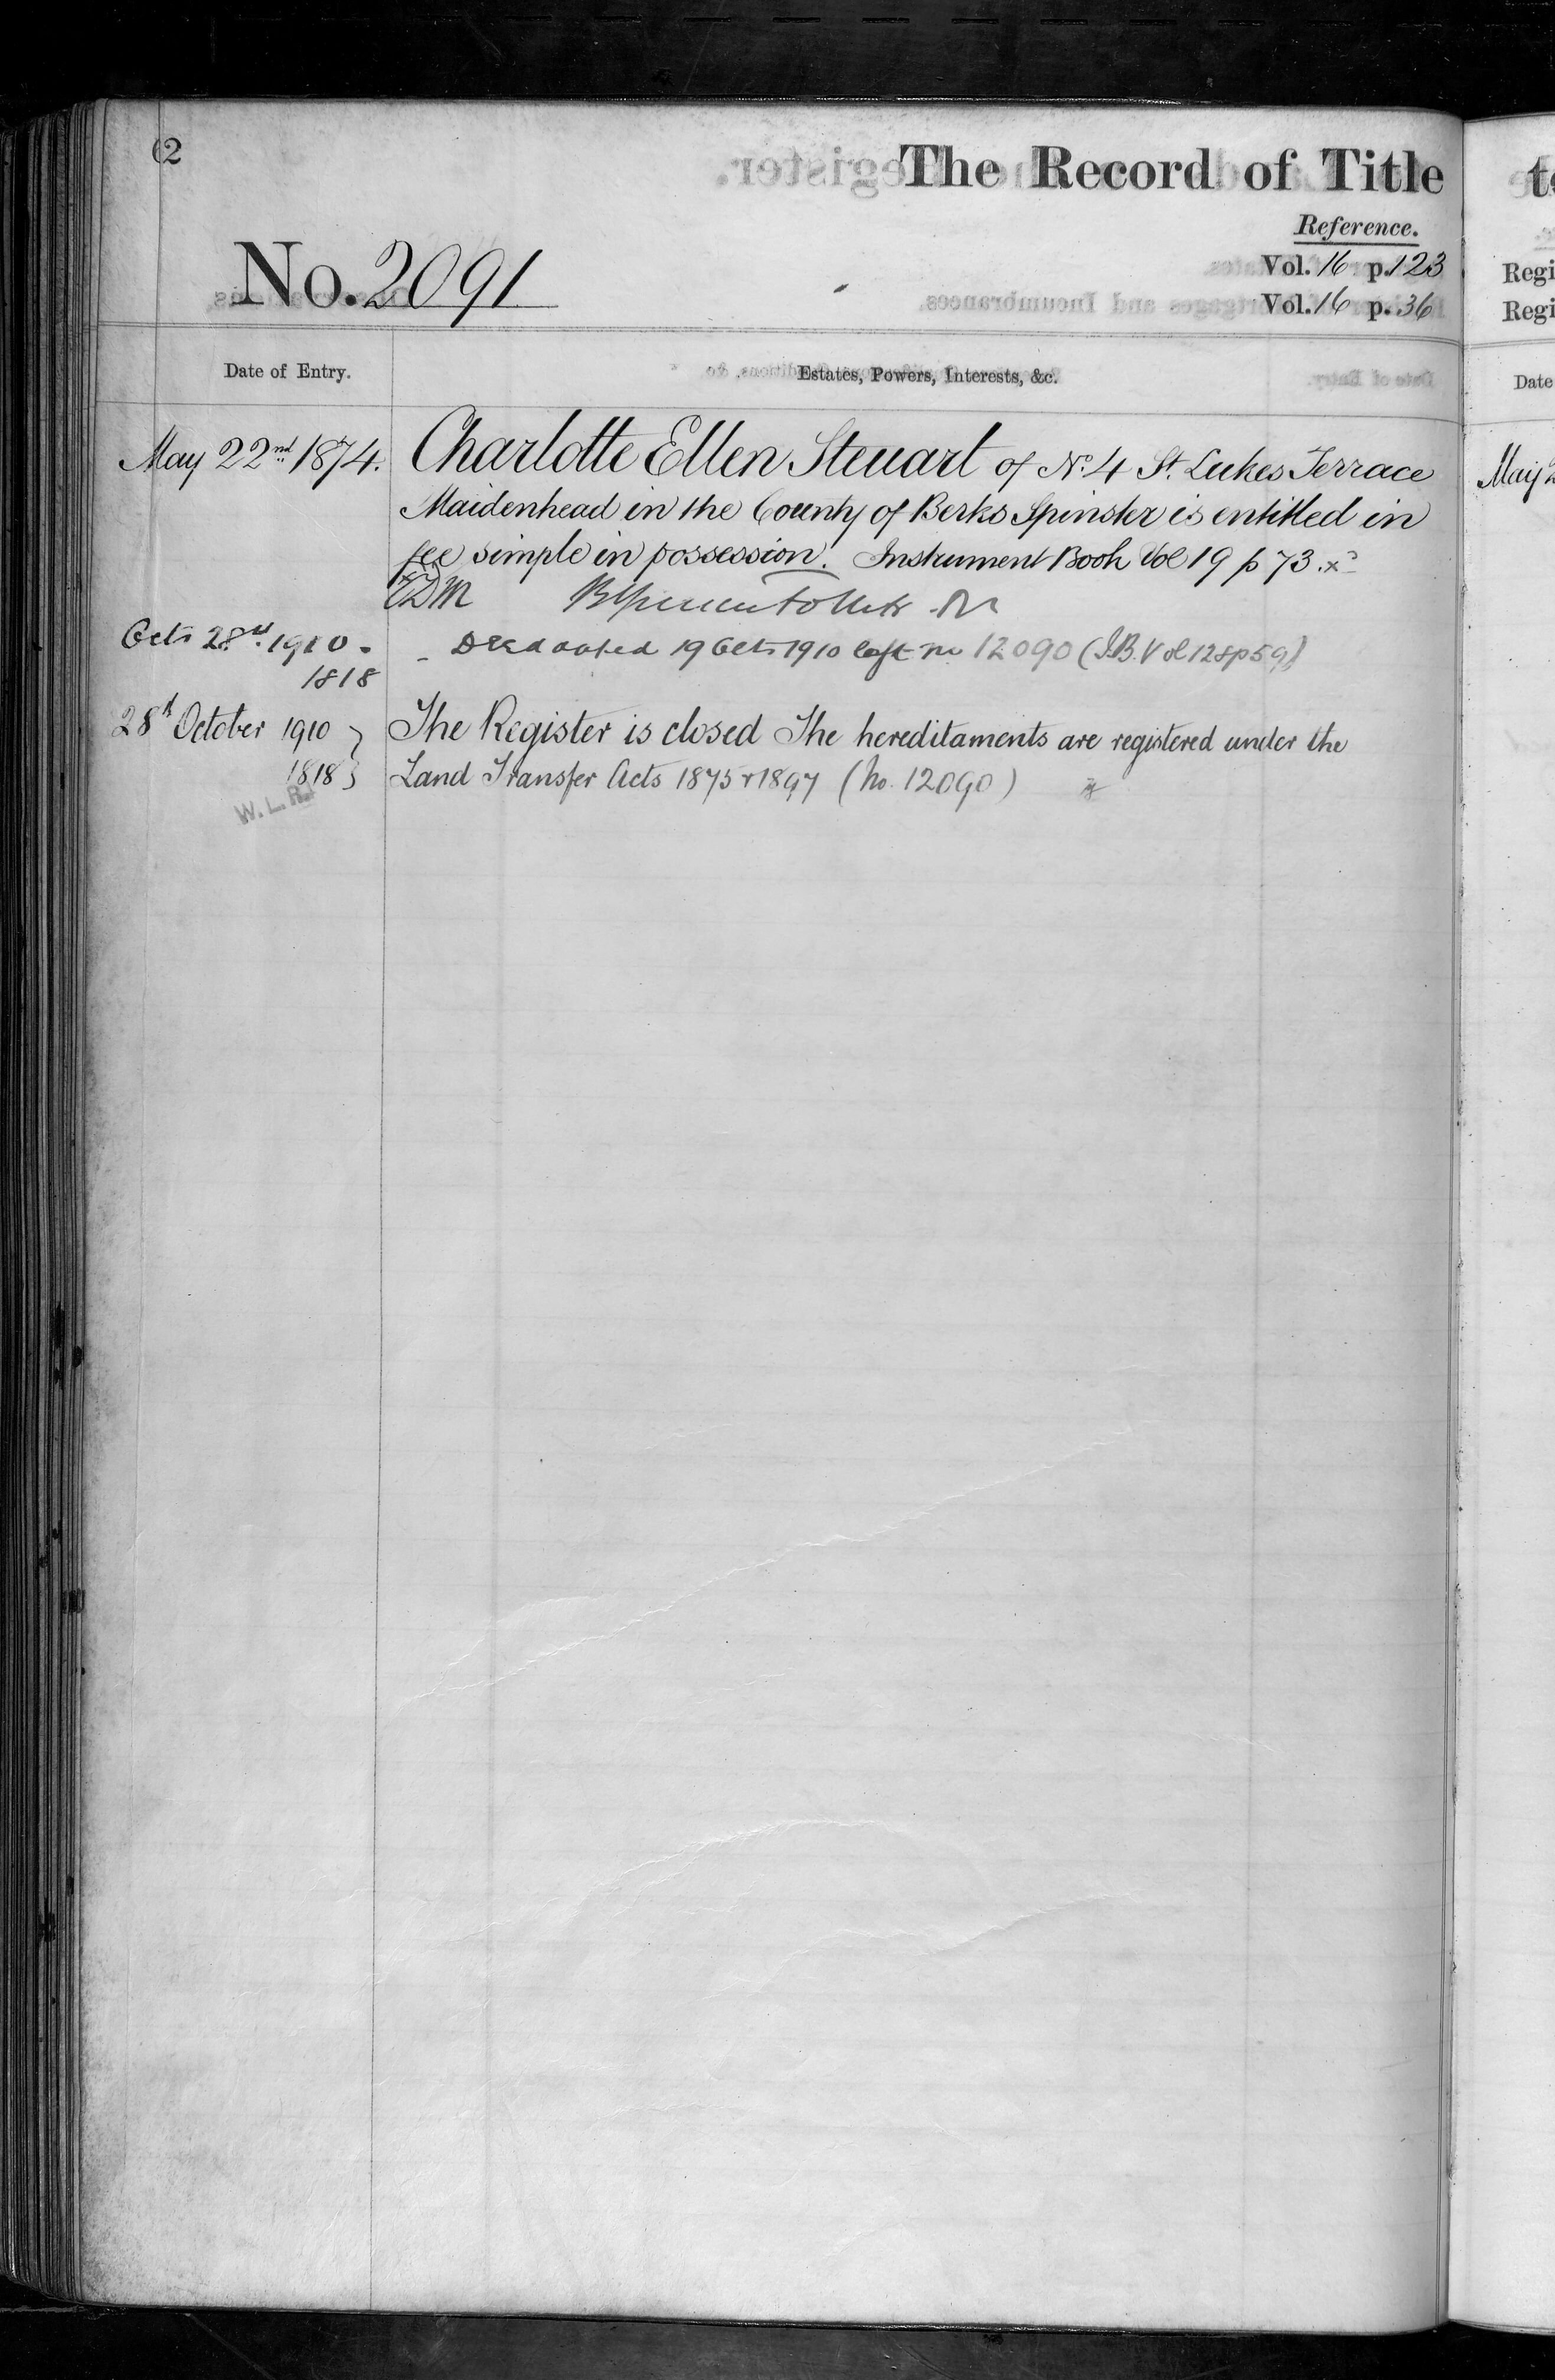 62
The Record of Title
Reference.
No. 2091
Vol. 16 p. 123
Vol. 16 p. 36
Date of Entry.
Estates, Powers, Interests, &c.
May 22nd 1874.
Charlotte Ellen Steuart of No. 4 St. Lukes Terrace
Maidenhead in the County of Berks Spinster is entitled in
fee simple in possession. Instrument Book Vol 19 p 73.
EDM
Octr 28th 1910.
1818
Deed dated 19 Octr 1910 left no 12090 (I.B. Vol 128 p 59)
28th October 1910
1818
The Register is closed The hereditaments are registered under the
Land Transfer Acts 1875 & 1897 (No. 12090)
W.L.R.
Regi
Regi
Date
May 2